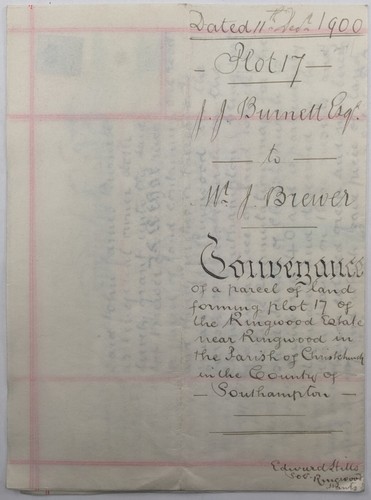 Dated 11th 1900
Plot 17
J. J. Burnett Esqr.
to
Mr. J. Brewer
Conveyance
of a parcel of land
forming plot 17 of
the Ringwood Estate
near Ringwood in
the Parish of Christchurch
in the County of
Southampton
Edward Hills
Sol.
Ringwood
Hants